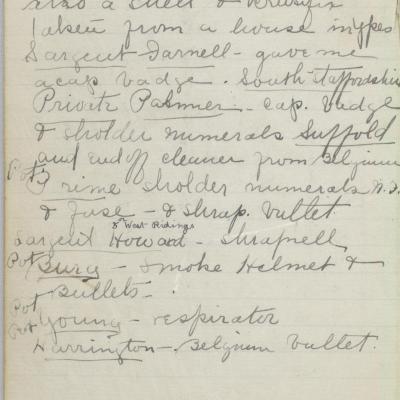 also a shell & Crucifix
taken from a house in ypes
Sargent Darnell - gave me
a cap badge. South Staffordshire
Private Palmer - cap. badge
& sholder numerals Suffold
and end off cleaner from Belgium
Pot Prime sholder numerals N.F.
& fuse - & shrap. bullet
5th West Ridings
Sargent Howard - Shrapnell
Pot Burg - Smoke Helmet &
Bullets -
Pot
Pot Young - respirator
Harrington - Belgium bullet.